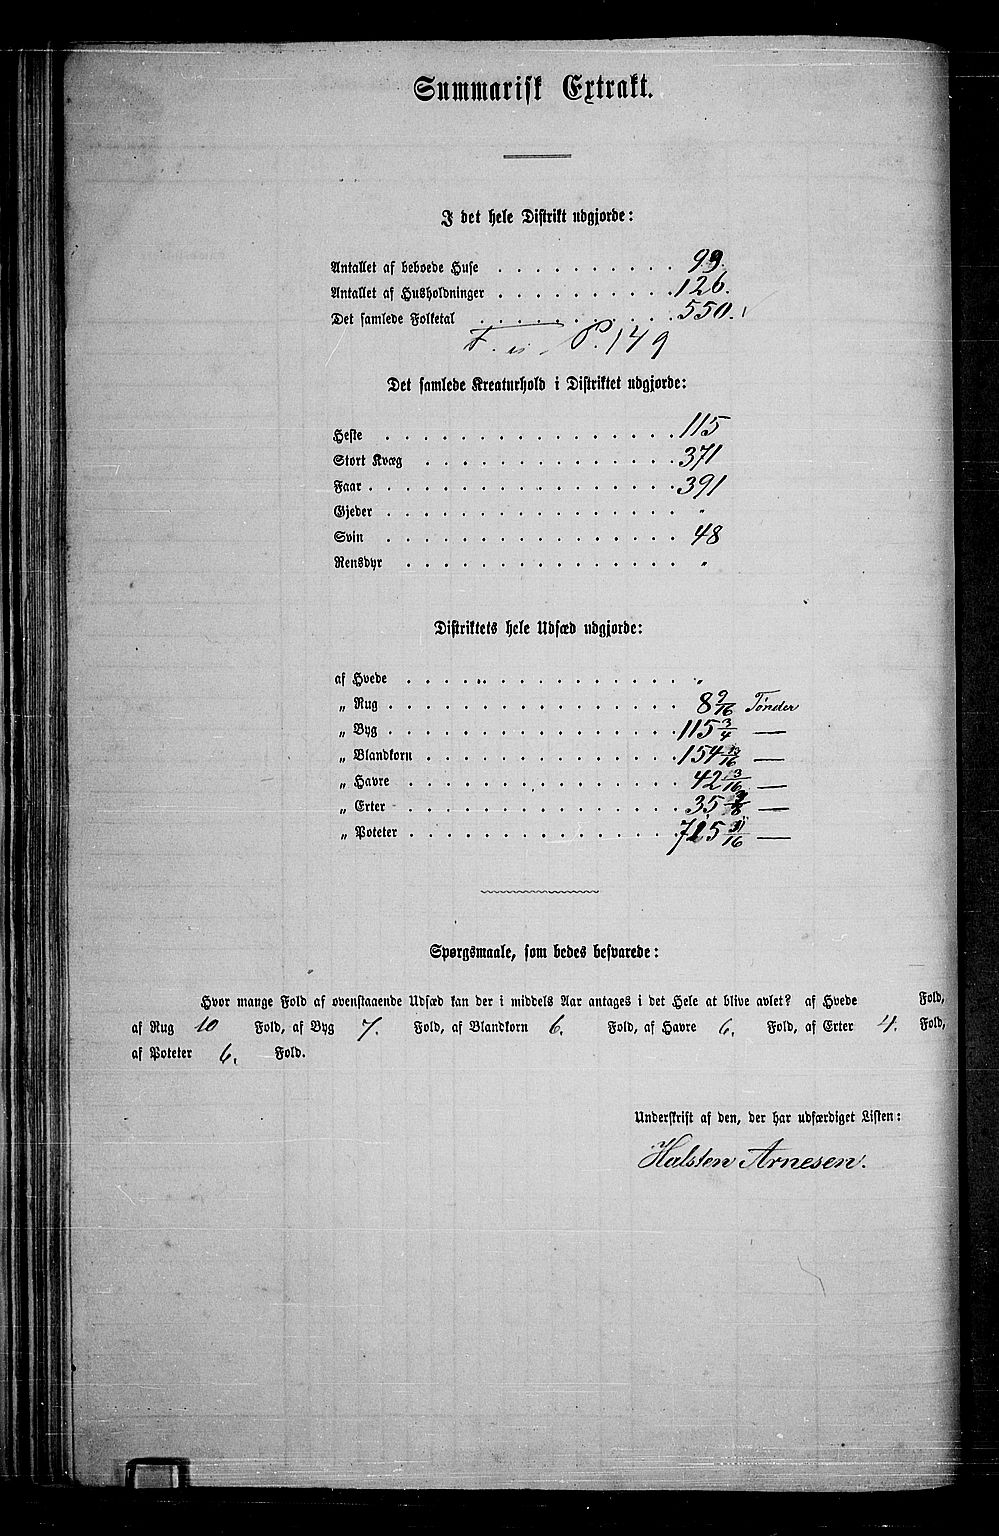 Summarisk Extrakt.
I det hele Distrikt udgjorde:
Antallet af beboede Huse . . . . . . . . . . 99.
Antallet af Husholdninger . . . . . . . . . . 126.
Det samlede Folketal . . . . . . . . . . . 550.
P. 149
Det samlede Kreaturhold i Distriktet udgjorde:
Heste . . . . . . . . . . . . . . . . 115
Stort Kvæg . . . . . . . . . . . . . . 371
Faar . . . . . . . . . . . . . . . . . 391
Gjeder . . . . . . . . . . . . . . . . "
Svin . . . . . . . . . . . . . . . . 48
Rensdyr . . . . . . . . . . . . . . . "
Distriktets hele Udsæd udgjorde:
af Hvede . . . . . . . . . . . . . . . "
„ Rug . . . . . . . . . . . . . . . . 8 9/16 Tønder
„ Byg . . . . . . . . . . . . . . . . 115 3/4 —
„ Blandkorn . . . . . . . . . . . . . . 154 13/16 —
„ Havre . . . . . . . . . . . . . . . 42 13/16 —
„ Erter . . . . . . . . . . . . . . . 35 —
„ Poteter . . . . . . . . . . . . . . . —
Spørgsmaale, som bedes besvarede:
Hvor mange Fold af ovenstaaende Udsæd kan der i middels Aar antages i det Hele at blive avlet? af Hvede Fold,
af Rug 10 Fold, af Byg 7. Fold, af Blandkorn 6. Fold, af Havre 6. Fold, af Erter 4. Fold,
af Poteter 6. Fold.
Underskrift af den, der har udfærdiget Listen:
Halsten Arnesen.